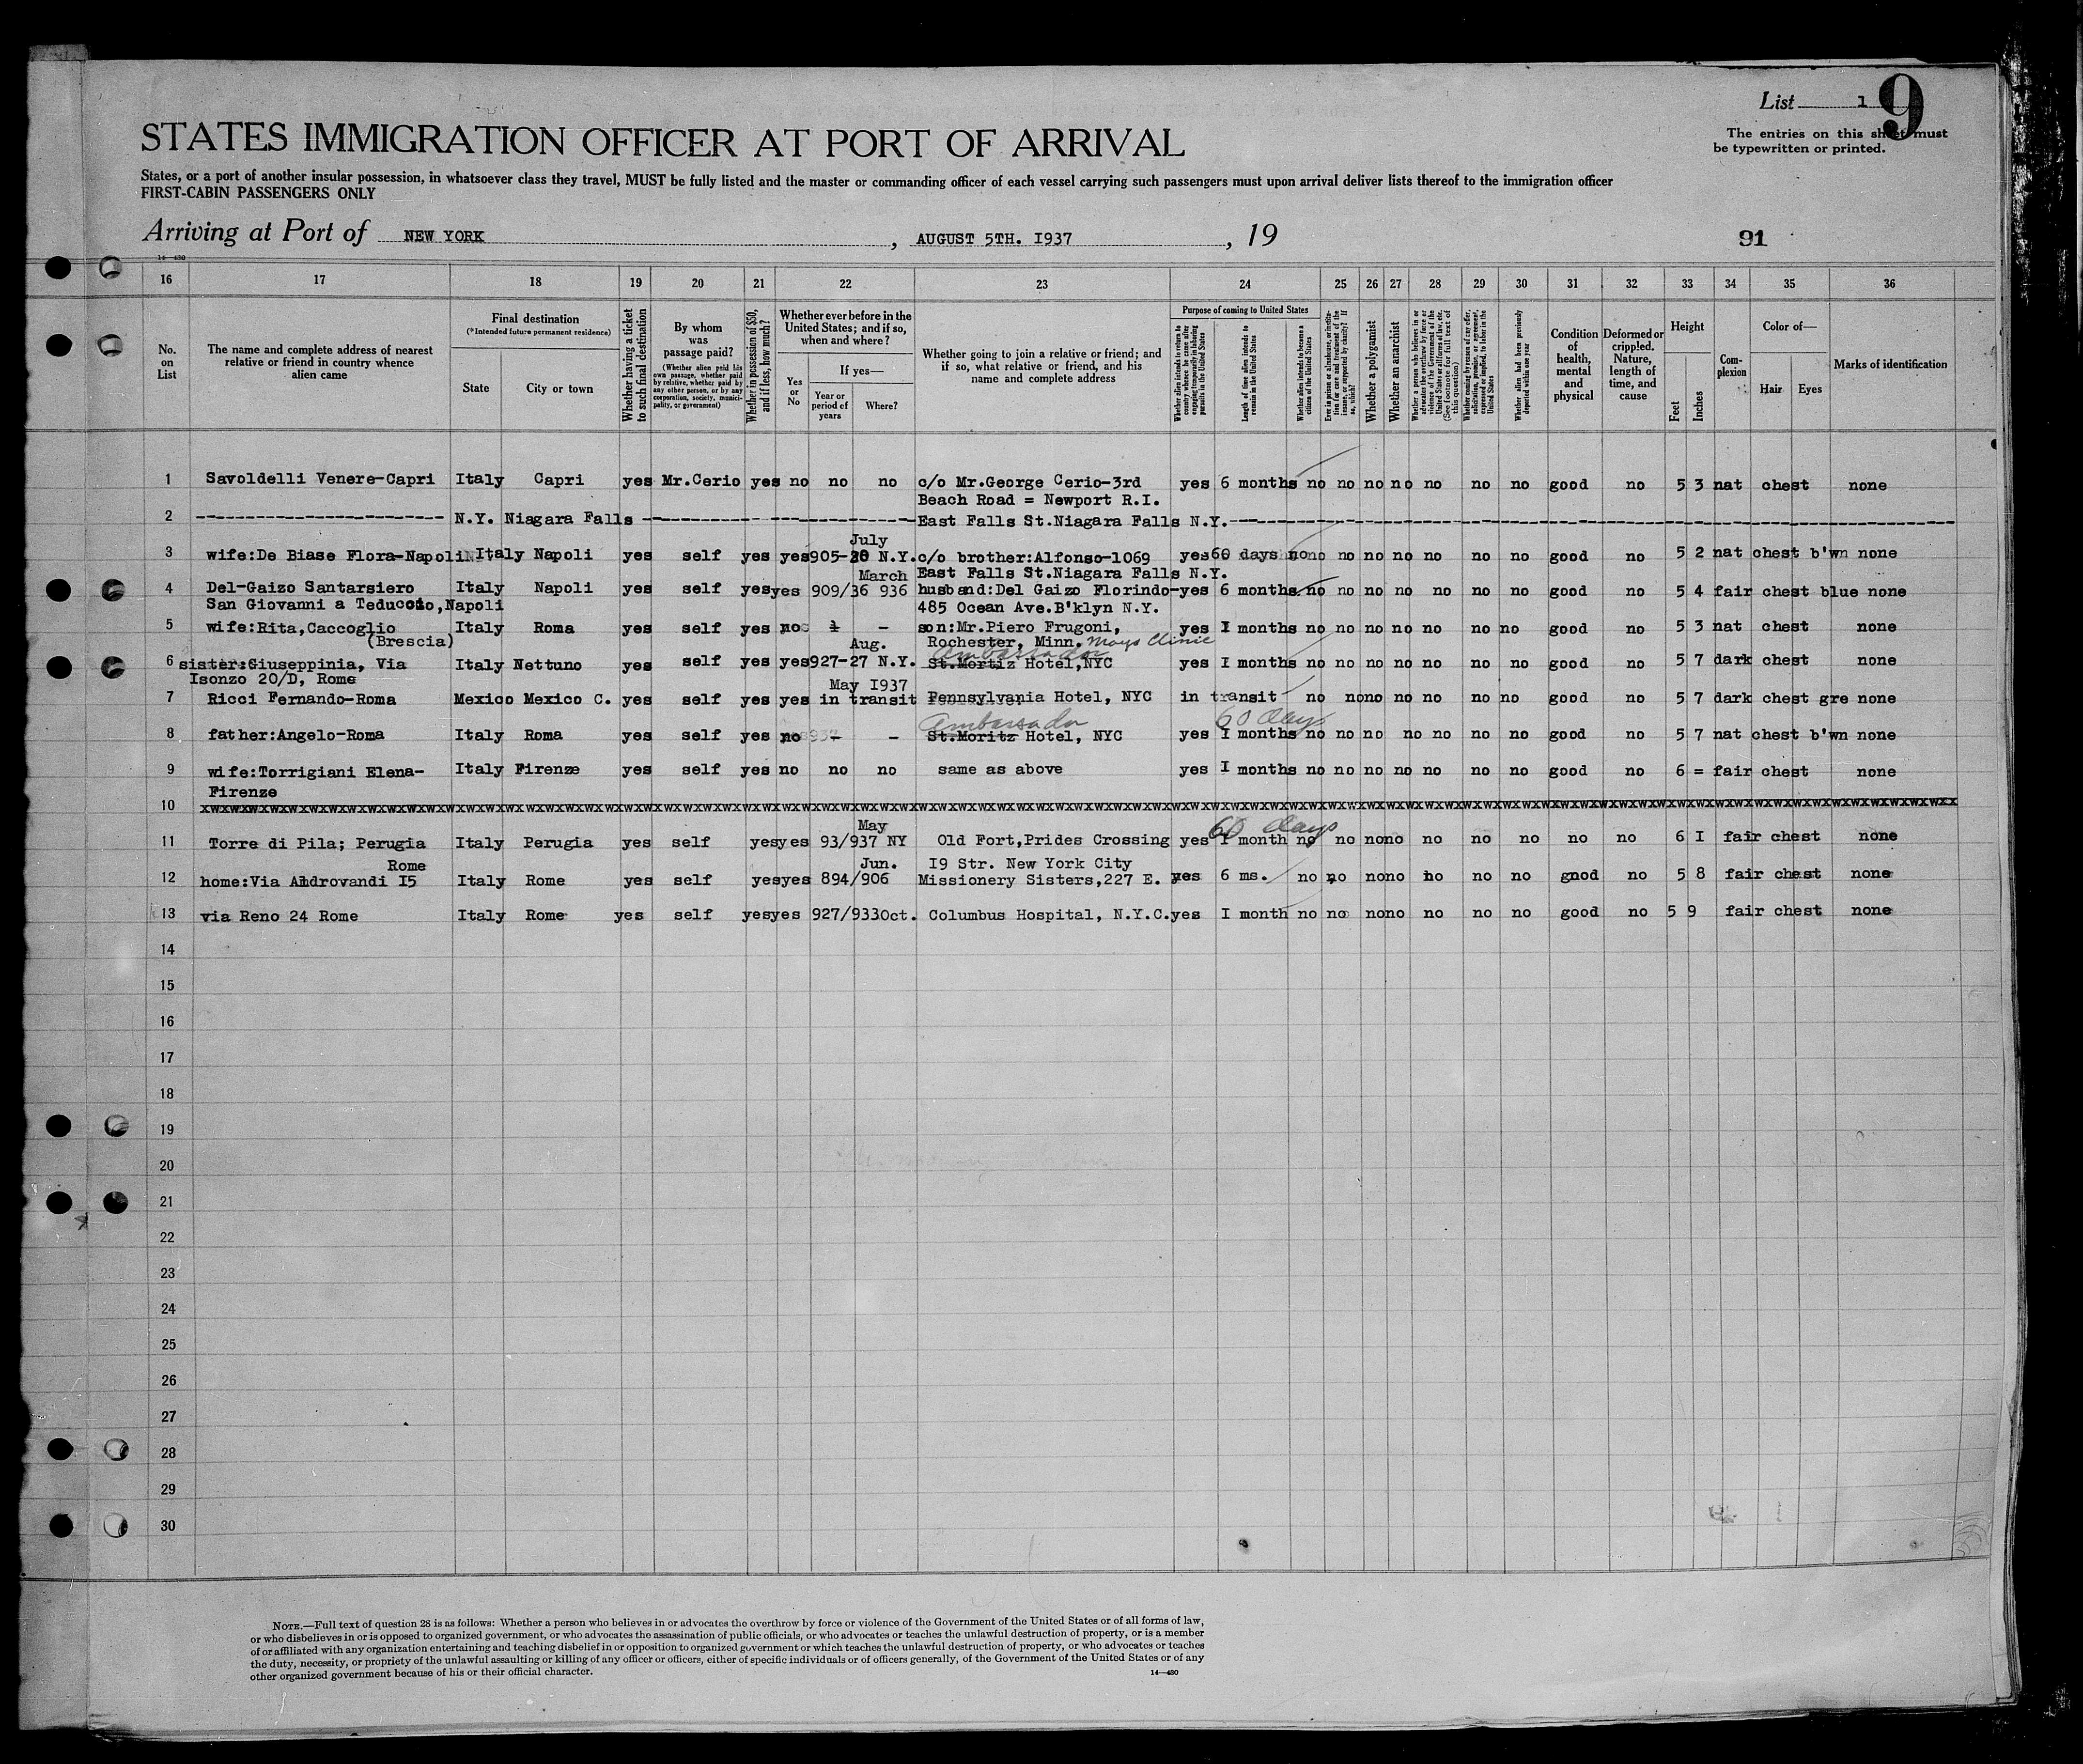 List 1 9
The entries on this sheet must
be typewritten or printed.
STATES IMMIGRATION OFFICER AT PORT OF ARRIVAL
States, or a port of another insular possession, in whatsoever class they travel, MUST be fully listed and the master or commanding officer of each vessel carrying such passengers must upon arrival deliver lists thereof to the immigration officer
FIRST-CABIN PASSENGERS ONLY
Arriving at Port of NEW YORK, AUGUST 5TH. I937, 19
91
14—430
16 17 18 19 20 21 22 23 24 25 26 27 28 29 30 31 32 33 34 35 36
No. on List
The name and complete address of nearest relative or friend in country whence alien came
Final destination
(*Intended future permanent residence)
State
City or town
Whether having a ticket to such final destination
By whom was passage paid?
(Whether alien paid his own passage, whether paid by relative, whether paid by any other person, or by any corporation, society, municipality, or government)
Whether in possession of $50, and if less, how much?
Whether ever before in the United States; and if so, when and where?
Yes or No
If yes—
Year or period of years
Where?
Whether going to join a relative or friend; and if so, what relative or friend, and his name and complete address
Purpose of coming to United States
Whether alien intends to return to country whence he came after engaging temporarily in laboring pursuits in the United States
Length of time alien intends to remain in the United States
Whether alien intends to become a citizen of the United States
Ever in prison or almshouse, or institution for care and treatment of the insane, or supported by charity? If so, which?
Whether a polygamist
Whether an anarchist
Whether a person who believes in or advocates the overthrow by force or violence of the Government of the United States or all forms of law, etc. (See footnote for full text of this question)
Whether coming by reason of any offer, solicitation, promise, or agreement, expressed or implied, to labor in the United States
Whether alien had been previously deported within one year
Condition of health, mental and physical
Deformed or crippled. Nature, length of time, and cause
Height
Feet
Inches
Complexion
Color of—
Hair
Eyes
Marks of identification
1 Savoldelli Venere-Capri Italy Capri yes Mr.Cerio yes no no no c/o Mr.George Cerio-3rd yes 6 months no no no no no no no good no 5 3 nat chest none
Beach Road = Newport R.I.
2 ---------- N.Y. Niagara Falls ---------- East Falls St.Niagara Falls N.Y. ----------
July
3 wife:De Biase Flora-Napoli Italy Napoli yes self yes yes 905-28 N.Y. c/o brother:Alfonso-1069 yes 60 days no no no no no no no no good no 5 2 nat chest b'wn none
March East Falls St.Niagara Falls N.Y.
4 Del-Gaizo Santarsiero Italy Napoli yes self yes yes 909/36 936 husband:Del Gaizo Florindo-yes 6 months no no no no no no no good no 5 4 fair chest blue none
San Giovanni a Teduccio,Napoli 485 Ocean Ave.B'klyn N.Y.
5 wife:Rita,Caccoglio Italy Roma yes self yes no - son:Mr.Piero Frugoni, yes I months no no no no no no no good no 5 3 nat chest none
(Brescia) Aug. Rochester, Minn. Mayo Clinic
Ambassador
6 sister:Giuseppinia, Via Italy Nettuno yes self yes yes 927-27 N.Y. St.Mortiz Hotel,NYC yes I months no no no no no no no good no 5 7 dark chest none
Isonzo 20/D, Rome May I937
7 Ricci Fernando-Roma Mexico Mexico C. yes self yes yes in transit Pennsylvania Hotel, NYC in transit no no no no no no no good no 5 7 dark chest gre none
Ambassador 60 days
8 father:Angelo-Roma Italy Roma yes self yes no - - St.Moritz Hotel, NYC yes I months no no no no no no no good no 5 7 nat chest b'wn none
9 wife:Torrigiani Elena- Italy Firenze yes self yes no no no same as above yes I months no no no no no no no good no 6 = fair chest none
Firenze
10 xwxwxwxwxwxwxwxwxwxwxwxwxwxwxwxwxwxwxwxwxwxwxwxwxwxwxwxwxwxwxwxx
May 60 days
11 Torre di Pila; Perugia Italy Perugia yes self yes yes 93/937 NY Old Fort,Prides Crossing yes I month no no no no no no no no no 6 I fair chest none
Rome Jun. I9 Str. New York City
12 home:Via Aldrovandi I5 Italy Rome yes self yes yes 894/906 Missionery Sisters,227 E. yes 6 ms. no no no no no no no good no 5 8 fair chest none
13 via Reno 24 Rome Italy Rome yes self yes yes 927/933Oct. Columbus Hospital, N.Y.C. yes I month no no no no no no no good no 5 9 fair chest none
14
15
16
17
18
19
20
21
22
23
24
25
26
27
28
29
30
NOTE.—Full text of question 28 is as follows: Whether a person who believes in or advocates the overthrow by force or violence of the Government of the United States or of all forms of law,
or who disbelieves in or is opposed to organized government, or who advocates the assassination of public officials, or who advocates or teaches the unlawful destruction of property, or is a member
of or affiliated with any organization entertaining and teaching disbelief in or opposition to organized government or which teaches the unlawful destruction of property, or who advocates or teaches
the duty, necessity, or propriety of the unlawful assaulting or killing of any officer or officers, either of specific individuals or of officers generally, of the Government of the United States or of any
other organized government because of his or their official character.
14—430